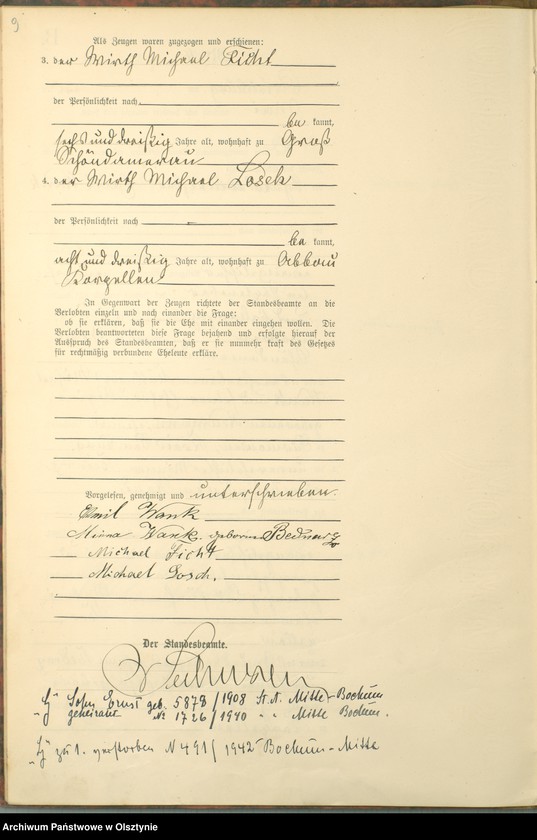 9
Als Zeugen waren zugezogen und erschienen:
3. der Wirth Michael Ficht
der Persönlichkeit nach
be kannt,
sechs und dreißig Jahre alt, wohnhaft zu Groß
Schöndamerau
4. der Wirth Michael Losch
der Persönlichkeit nach
be kannt,
acht und dreißig Jahre alt, wohnhaft zu Abbau
Korpellen
In Gegenwart der Zeugen richtete der Standesbeamte an die
Verlobten einzeln und nach einander die Frage:
ob sie erklären, daß sie die Ehe mit einander eingehen wollen. Die
Verlobten beantworteten diese Frage bejahend und erfolgte hierauf der
Ausspruch des Standesbeamten, daß er sie nunmehr kraft des Gesetzes
für rechtmäßig verbundene Eheleute erkläre.
Vorgelesen, genehmigt und unterschrieben.
Emil Wank
Minna Wank geborene
Michael Ficht
Michael Losch.
Der Standesbeamte.
Sohn Ernst geb. 5878/1908 St.A. Mitte-Bochum
geheiratet № 1726/1940 " " Mitte Bochum.
zu 1. verstorben N 491/1942 Bochum-Mitte
Archiwum Państwowe w Olsztynie